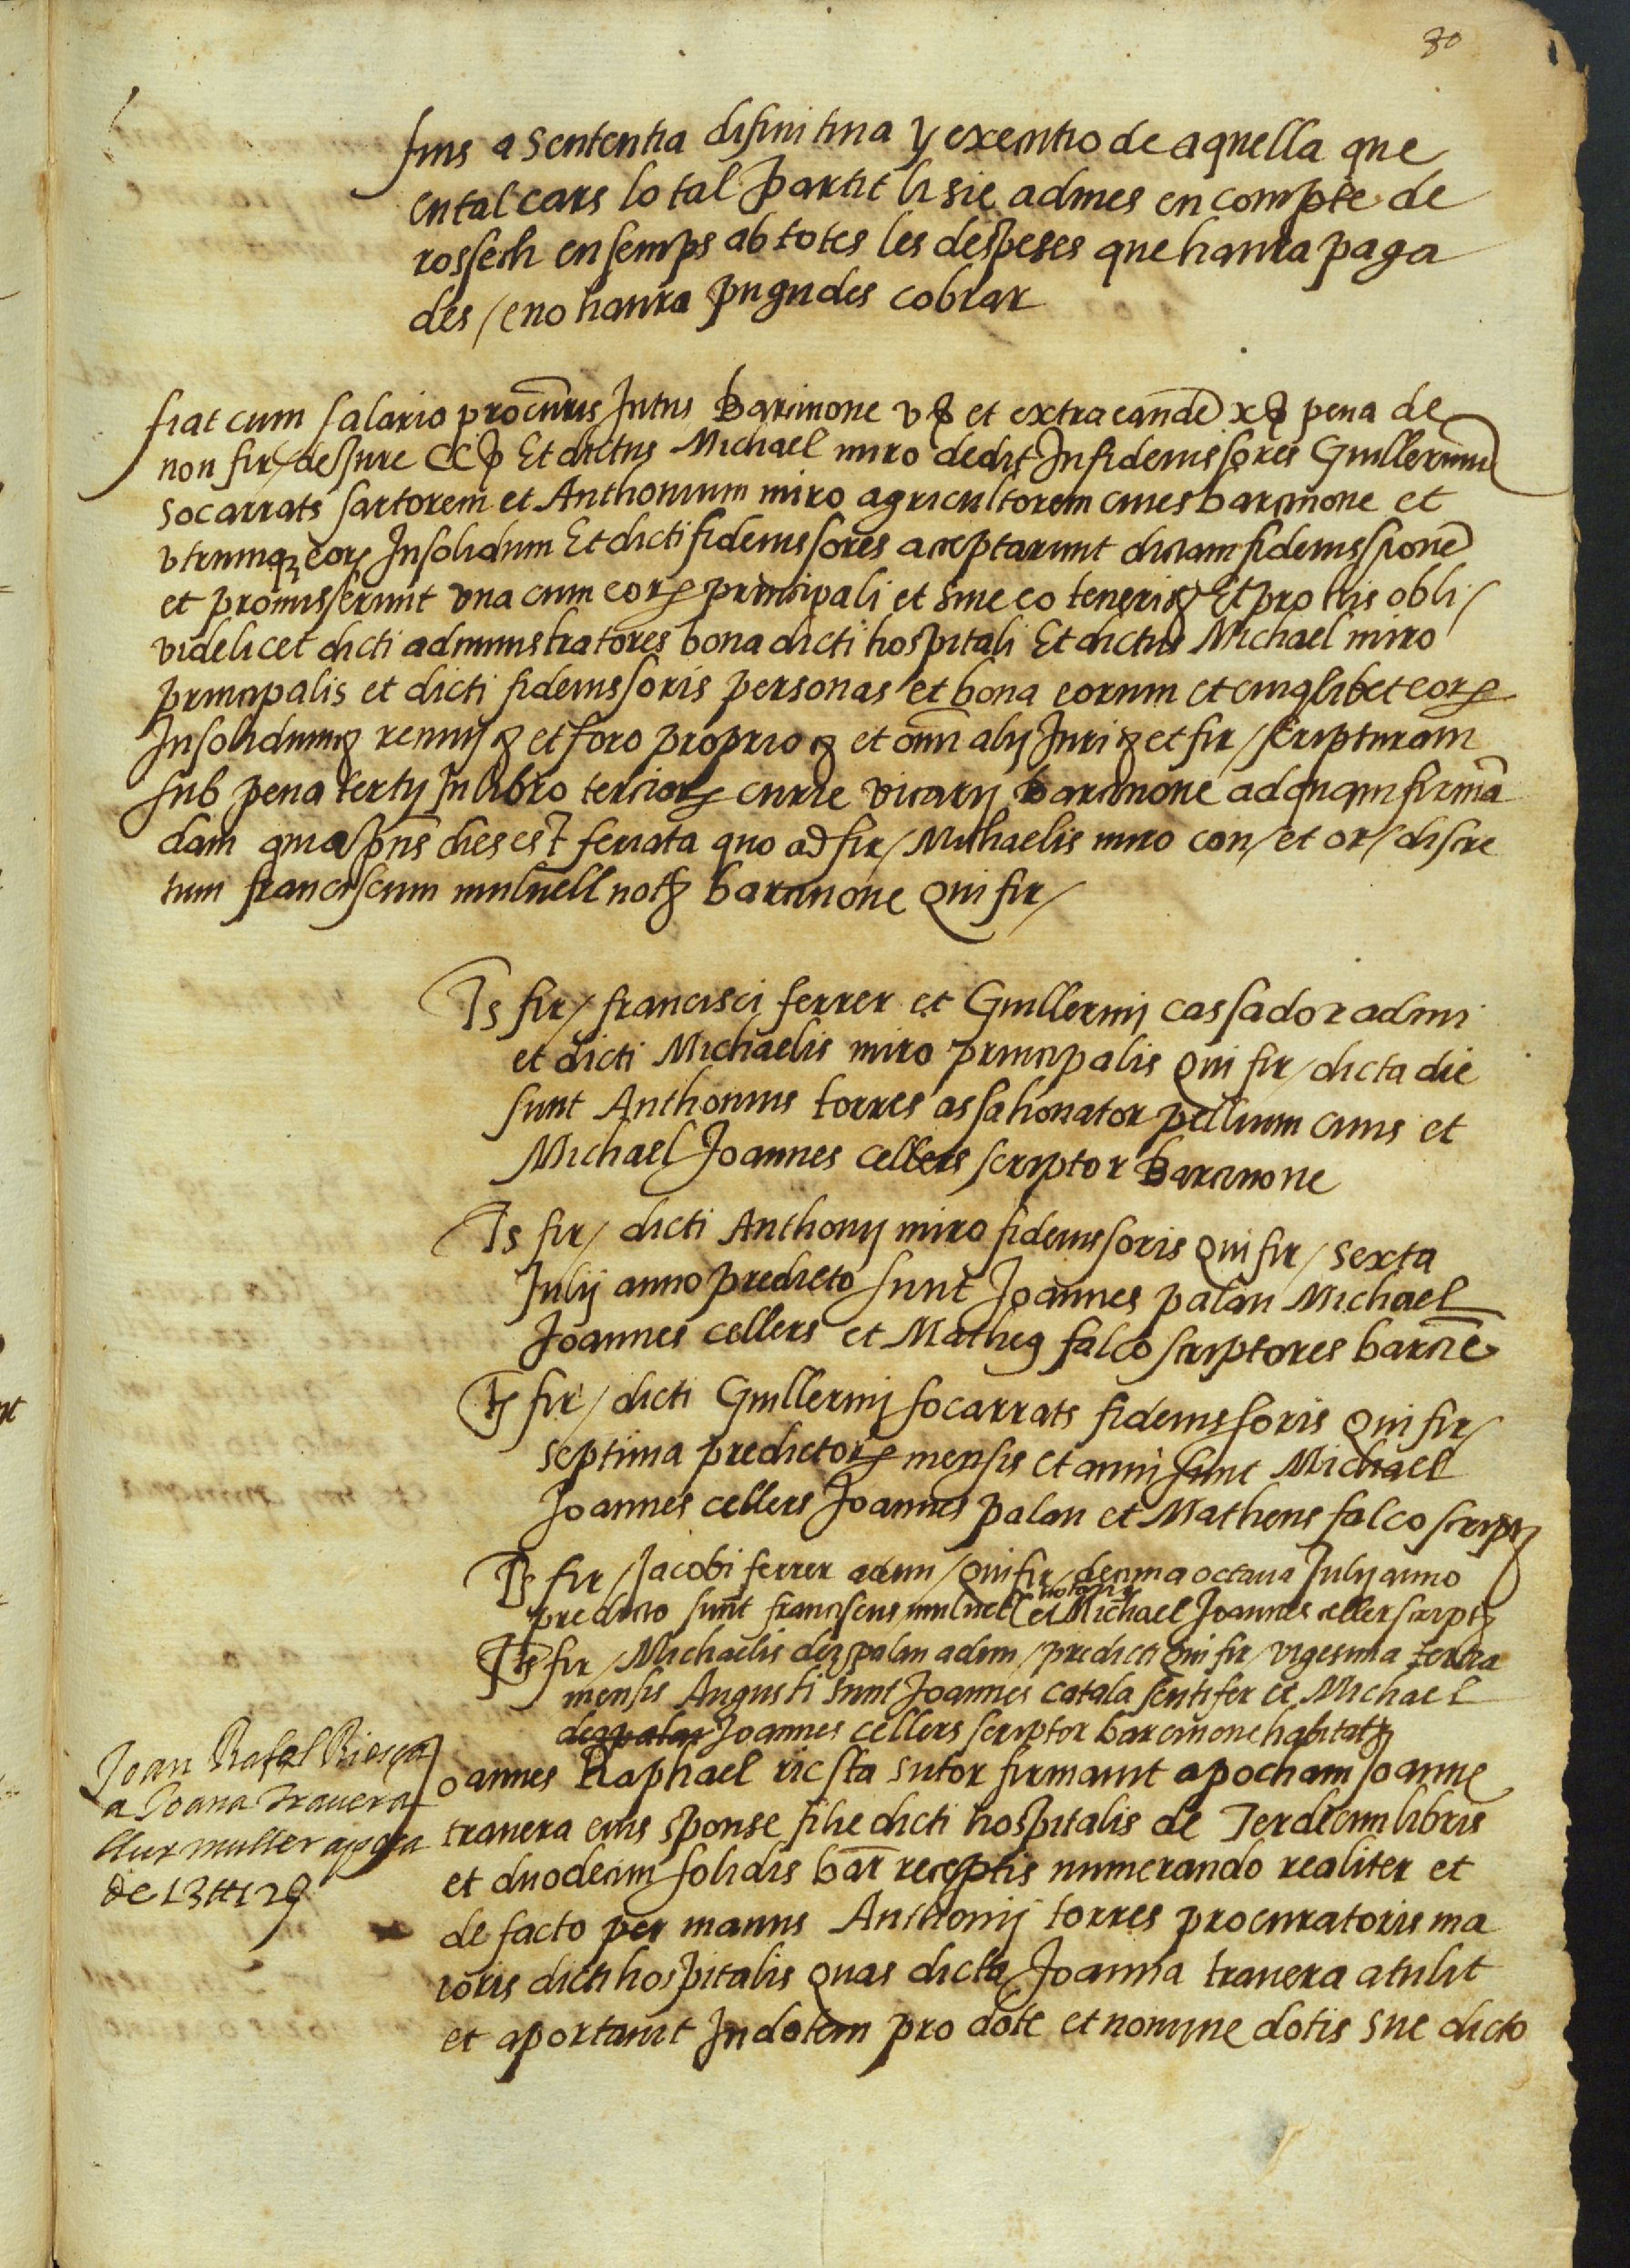 80
fins a sententia difinitiva y exentio de aquella que
en tal cars lo tal partit li sie admes en compte de
rossech ensemps ab totes les despeses que haura paga
des / e no haura pugudes cobrar
fiat cum salario procuris Intus Barcinone v ß et extra eande x ß pena de
non fir / dessure CC ß Et dictus Michael miro dedit In fideiussores Guillermu
Socarrats sartorem et Anthonium miro agricultorem cives barcinone et
vtrumq eor Insolidum Et dicti fideiussores acceptarunt dictam fideiussione
et promisserunt vna cum eor principali et sine eo teneri Et pro his obli /
videlicet dicti administratores bona dicti hospitali Et dictus Michael miro
principalis et dicti fideiussoris personas et bona eorum et cuiuslibet eor
Insolidum renuij et foro proprio et omi alij Juri et fir / scripturam
sub pena tertij In libro tercior curie vicarij Barcinone ad quam firma
dam quia pns dies est feriata quo ad fir / Michaelis miro con / et or / discre
tum franciscum mulnell not barcinone Qui fir /
Ts fir / francisci ferrer et Guillermij cassador admi
et dicti Michaelis miro principalis Qui fir / dicta die
sunt Anthonius torres assahonator pellium civis et
Michael Joannes cellers scriptor Barcinone
Ts fir / dicti Anthonij miro fideiussoris Qui fir / sexta
Julij anno predicto sunt Joannes palau Michael
Joannes cellers et Matheus falco scriptores barcine
Ts fir / dicti Guillermij socarrats fideiussoris Qui fir /
septima predictor mensis et anni sunt Michael
Joannes cellers Joannes palau et Matheus falco script
Ts fir / Jacobi ferrer adm / Qui fir / decima octava Julij anno
predicto sunt franciscus mulnell notarius et Michael Joannes celler script
Ts fir / Michaelis dezpalau adm / predicti Qui fir / vigesima tertia
mensis Augusti sunt Joannes catala sentifer et Michael
dezpalau Joannes cellers scriptor barcinone habitat
Joan Rafel Riesta
a Joana Travera
llur muller apoca
de 13 ll 12 ß
Joannes Raphael ricsta sutor firmavit apocham Joanne
travera eius sponse filie dicti hospitalis de Terdecim libris
et duodecim solidis bar receptis numerando realiter et
de facto per manus Anthonij torres procuratoris ma
ioris dicti hospitalis Quas dicta Joanna travera atulit
et aportavit In dotem pro dote et nomine dotis sue dicto